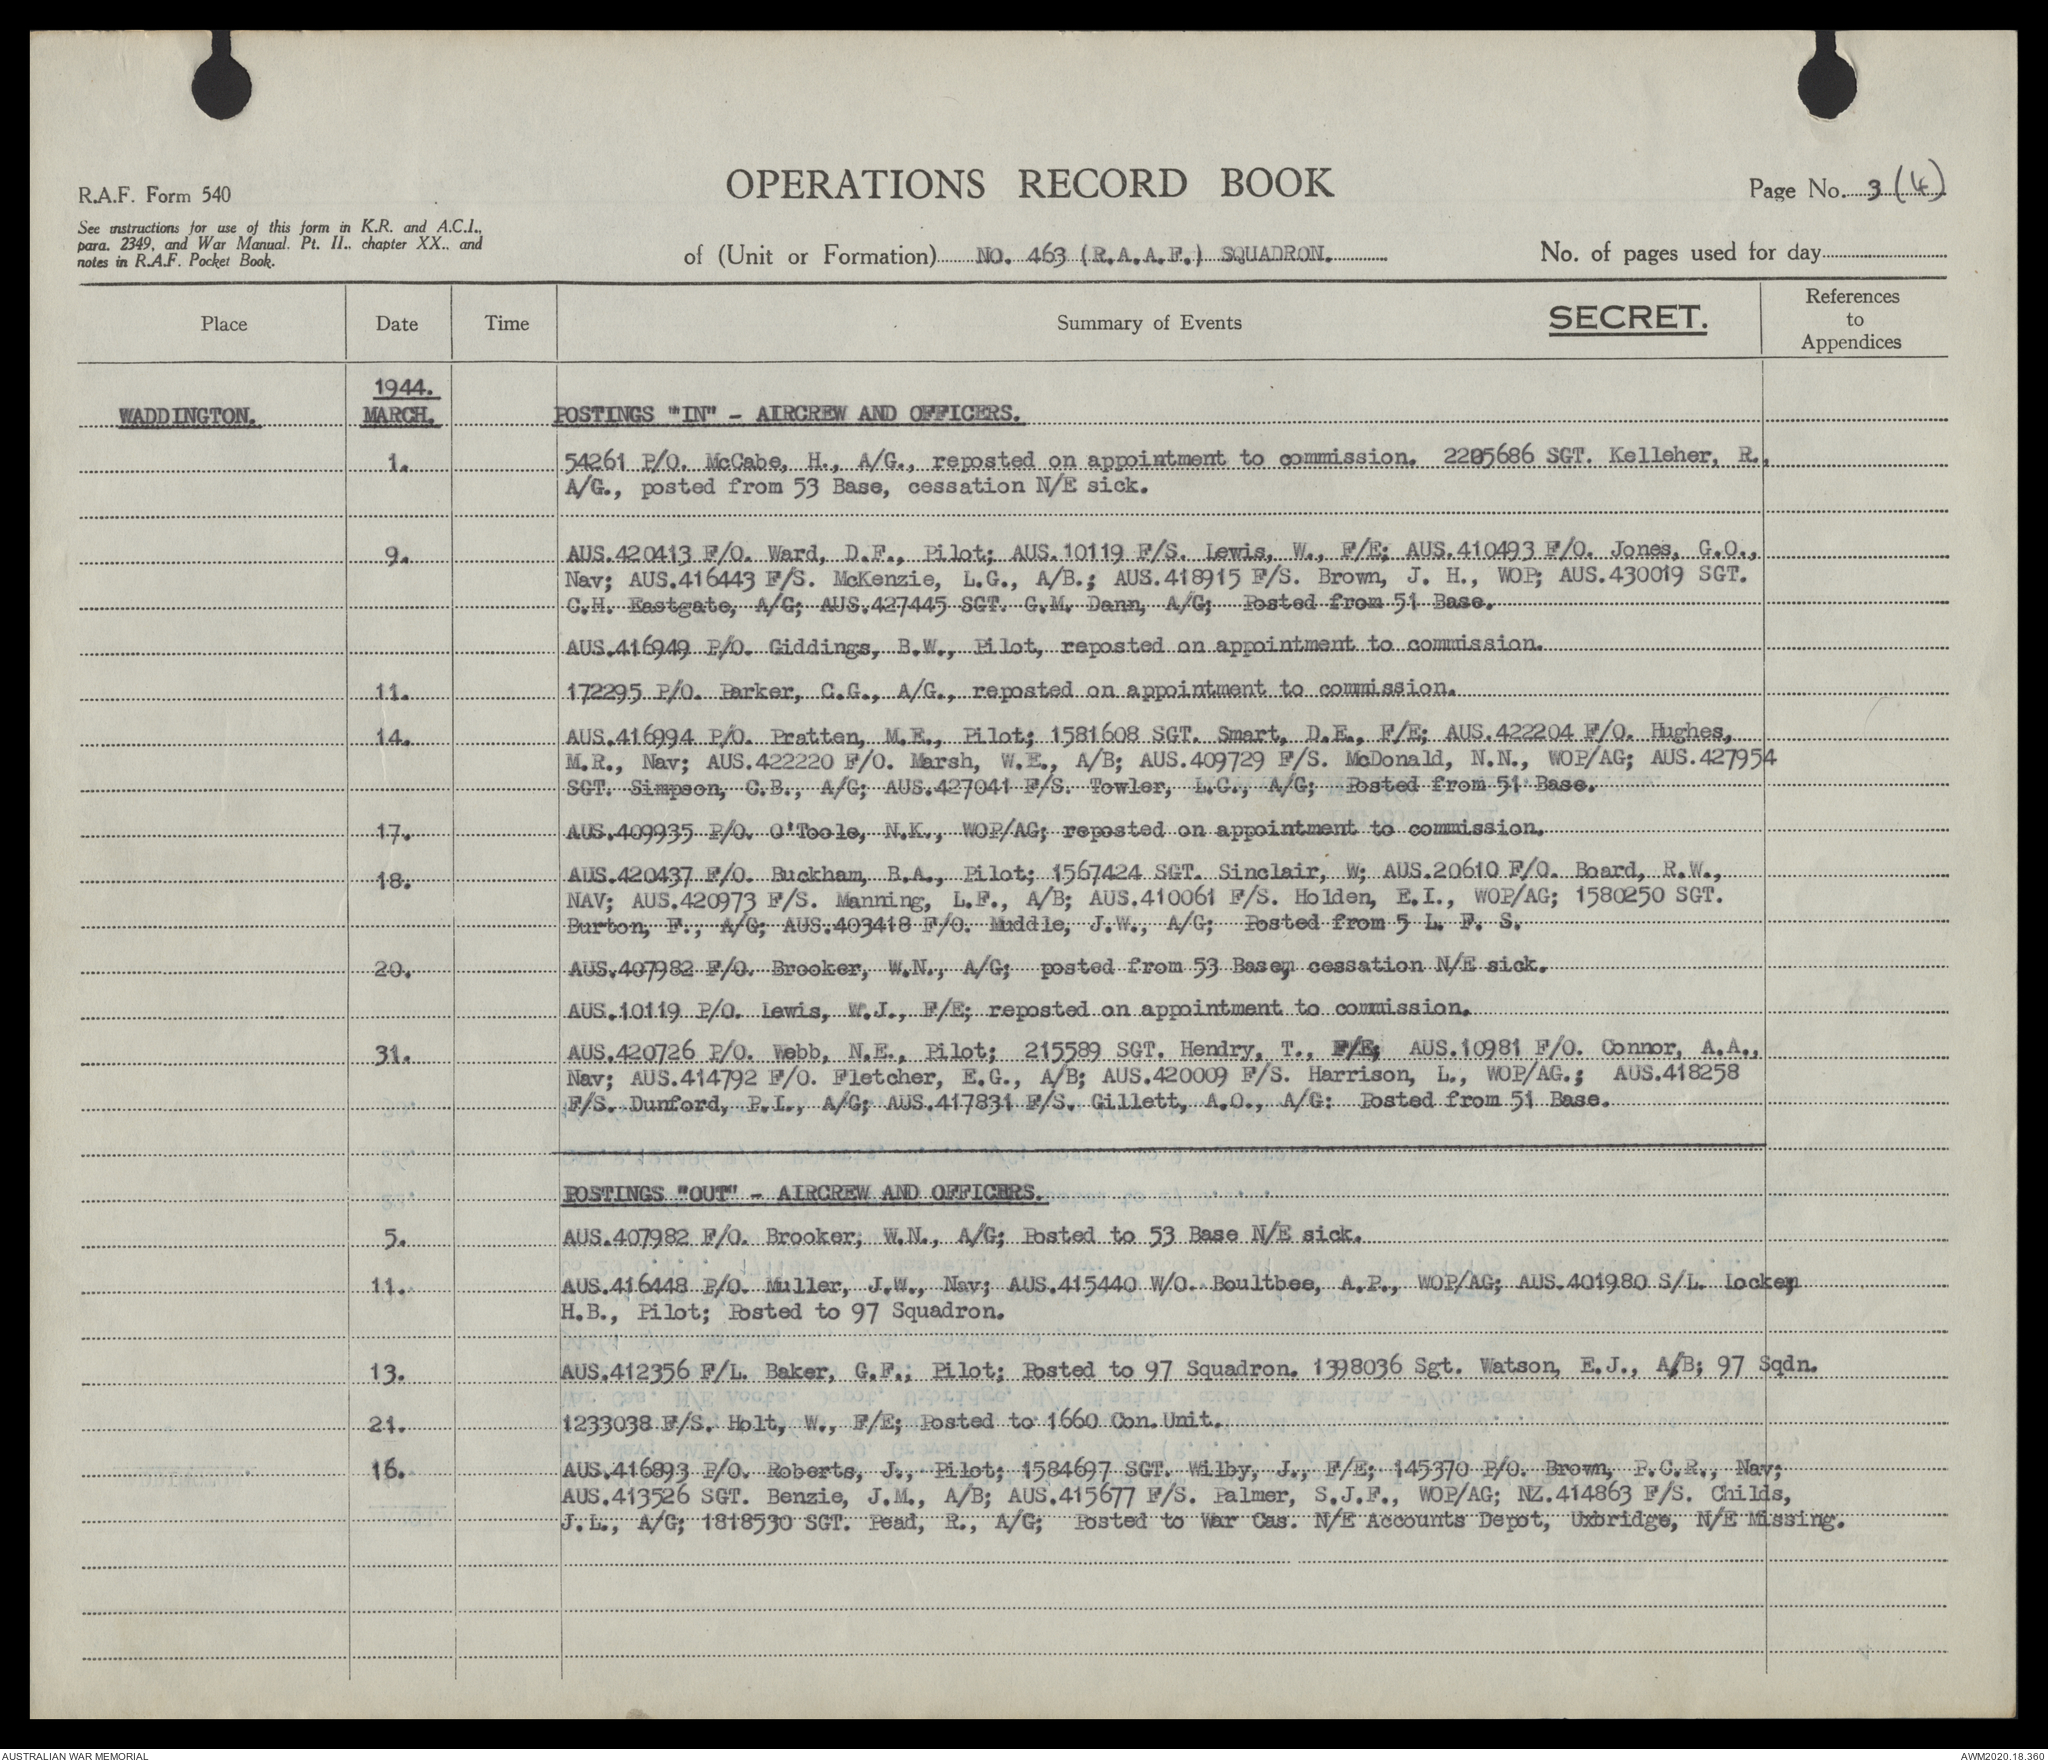 R.A.F. Form 540
See instructions for use of this form in K.R. and A.C.I.,
para. 2349, and War Manual. Pt. II., chapter XX., and
notes in R.A.F. Pocket Book.
OPERATIONS RECORD BOOK
of (Unit or Formation) NO. 463 (R.A.A.F.) SQUADRON.
Page No. 3 (4)
No. of pages used for day
Place Date Time Summary of Events SECRET. References to Appendices
1944.
WADDINGTON. MARCH. POSTINGS "IN" - AIRCREW AND OFFICERS.
1. 54261 P/O. McCabe, H., A/G., reposted on appointment to commission. 2205686 SGT. Kelleher, R.,
A/G., posted from 53 Base, cessation N/E sick.
9. AUS.420413 F/O. Ward, D.F., Pilot; AUS.10119 F/S. Lewis, W., F/E; AUS.410493 F/O. Jones, G.O.,
Nav; AUS.416443 F/S. McKenzie, L.G., A/B.; AUS.418915 F/S. Brown, J. H., WOP; AUS.430019 SGT.
C.H. Eastgate, A/G; AUS.427445 SGT. G.M. Dann, A/G; Posted from 51 Base.
AUS.416949 P/O. Giddings, B.W., Pilot, reposted on appointment to commission.
11. 172295 P/O. Parker, C.G., A/G., reposted on appointment to commission.
14. AUS.416994 P/O. Pratten, M.E., Pilot; 1581608 SGT. Smart, D.E., F/E; AUS.422204 F/O. Hughes,
M.R., Nav; AUS.422220 F/O. Marsh, W.E., A/B; AUS.409729 F/S. McDonald, N.N., WOP/AG; AUS.427954
SGT. Simpson, C.B., A/G; AUS.427041 F/S. Towler, L.G., A/G; Posted from 51 Base.
17. AUS.409935 P/O. O'Toole, N.K., WOP/AG; reposted on appointment to commission.
18. AUS.420437 F/O. Buckham, B.A., Pilot; 1567424 SGT. Sinclair, W; AUS.20610 F/O. Board, R.W.,
NAV; AUS.420973 F/S. Manning, L.F., A/B; AUS.410061 F/S. Holden, E.I., WOP/AG; 1580250 SGT.
Burton, F., A/G; AUS.403418 F/O. Muddle, J.W., A/G; Posted from 5 L. F. S.
20. AUS.407982 F/O. Brooker, W.N., A/G; posted from 53 Base, cessation N/E sick.
AUS.10119 P/O. Lewis, W.J., F/E; reposted on appointment to commission.
31. AUS.420726 P/O. Webb, N.E., Pilot; 215589 SGT. Hendry, T., F/E; AUS.10981 F/O. Connor, A.A.,
Nav; AUS.414792 F/O. Fletcher, E.G., A/B; AUS.420009 F/S. Harrison, L., WOP/AG.; AUS.418258
F/S. Dunford, P.I., A/G; AUS.417831 F/S. Gillett, A.O., A/G: Posted from 51 Base.
POSTINGS "OUT" - AIRCREW AND OFFICERS.
5. AUS.407982 F/O. Brooker, W.N., A/G; Posted to 53 Base N/E sick.
11. AUS.416448 P/O. Muller, J.W., Nav; AUS.415440 W/O. Boultbee, A.P., WOP/AG; AUS.401980 S/L. Locke,
H.B., Pilot; Posted to 97 Squadron.
13. AUS.412356 F/L. Baker, G.F., Pilot; Posted to 97 Squadron. 1398036 Sgt. Watson, E.J., A/B; 97 Sqdn.
21. 1233038 F/S. Holt, W., F/E; Posted to 1660 Con.Unit.
16. AUS.416893 P/O. Roberts, J., Pilot; 1584697 SGT. Wilby, J., F/E; 145370 P/O. Brown, P.C.R., Nav;
AUS.413526 SGT. Benzie, J.M., A/B; AUS.415677 F/S. Palmer, S.J.F., WOP/AG; NZ.414863 F/S. Childs,
J.L., A/G; 1818530 SGT. Pead, R., A/G; Posted to War Cas. N/E Accounts Depot, Uxbridge, N/E Missing.
AUSTRALIAN WAR MEMORIAL
AWM2020.18.360